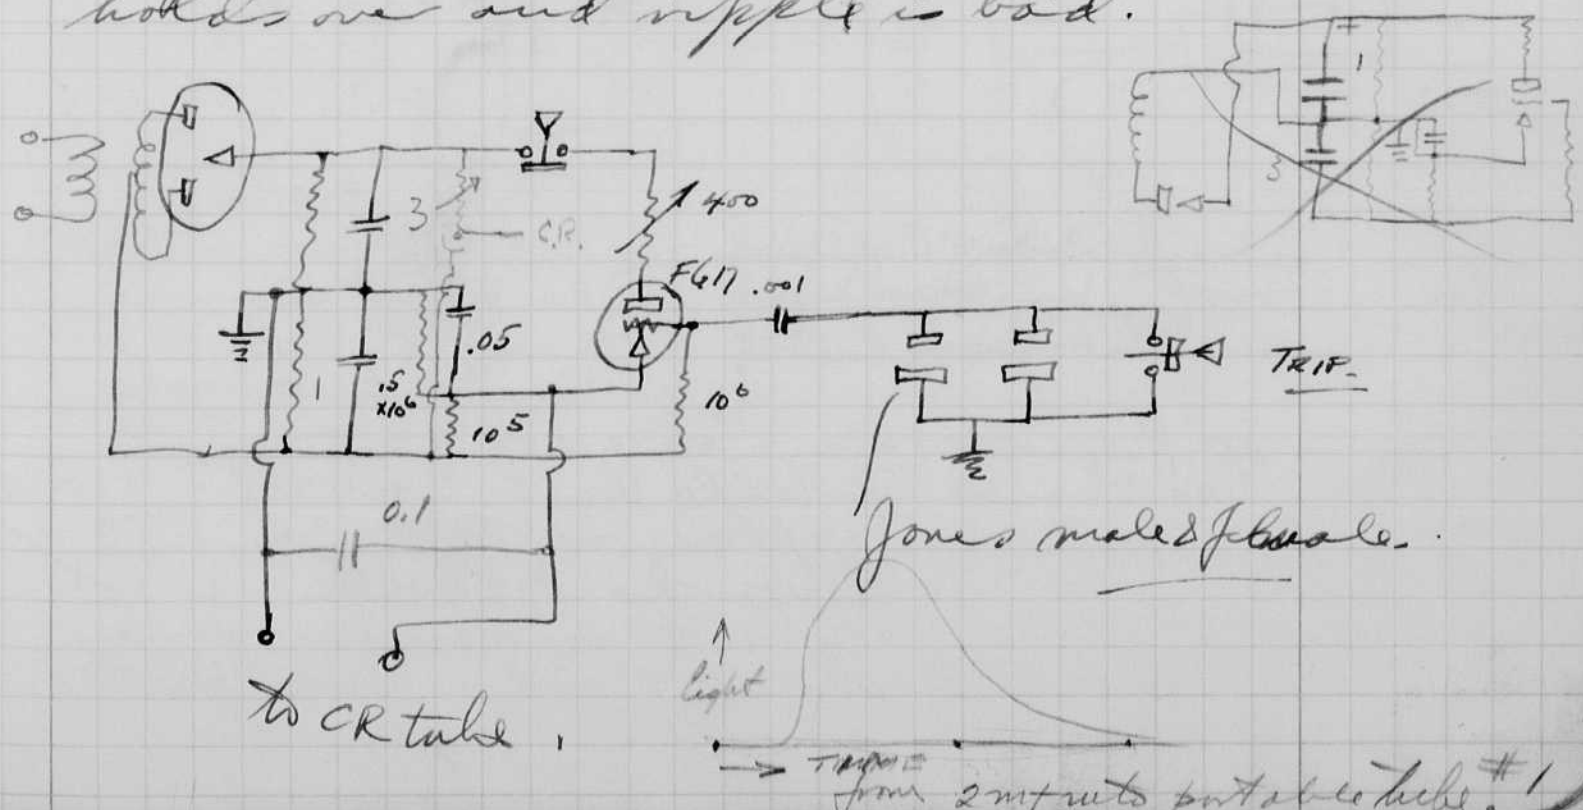 holds over and ripple is bad.
+
1
3
3
C.R.
400
FG17
.001
.05
1
.5
x10⁶
10⁵
10⁶
TRIP.
0.1
Jones male & female.
to CR tube.
light
TIME
from 2 mf into portable tube #1